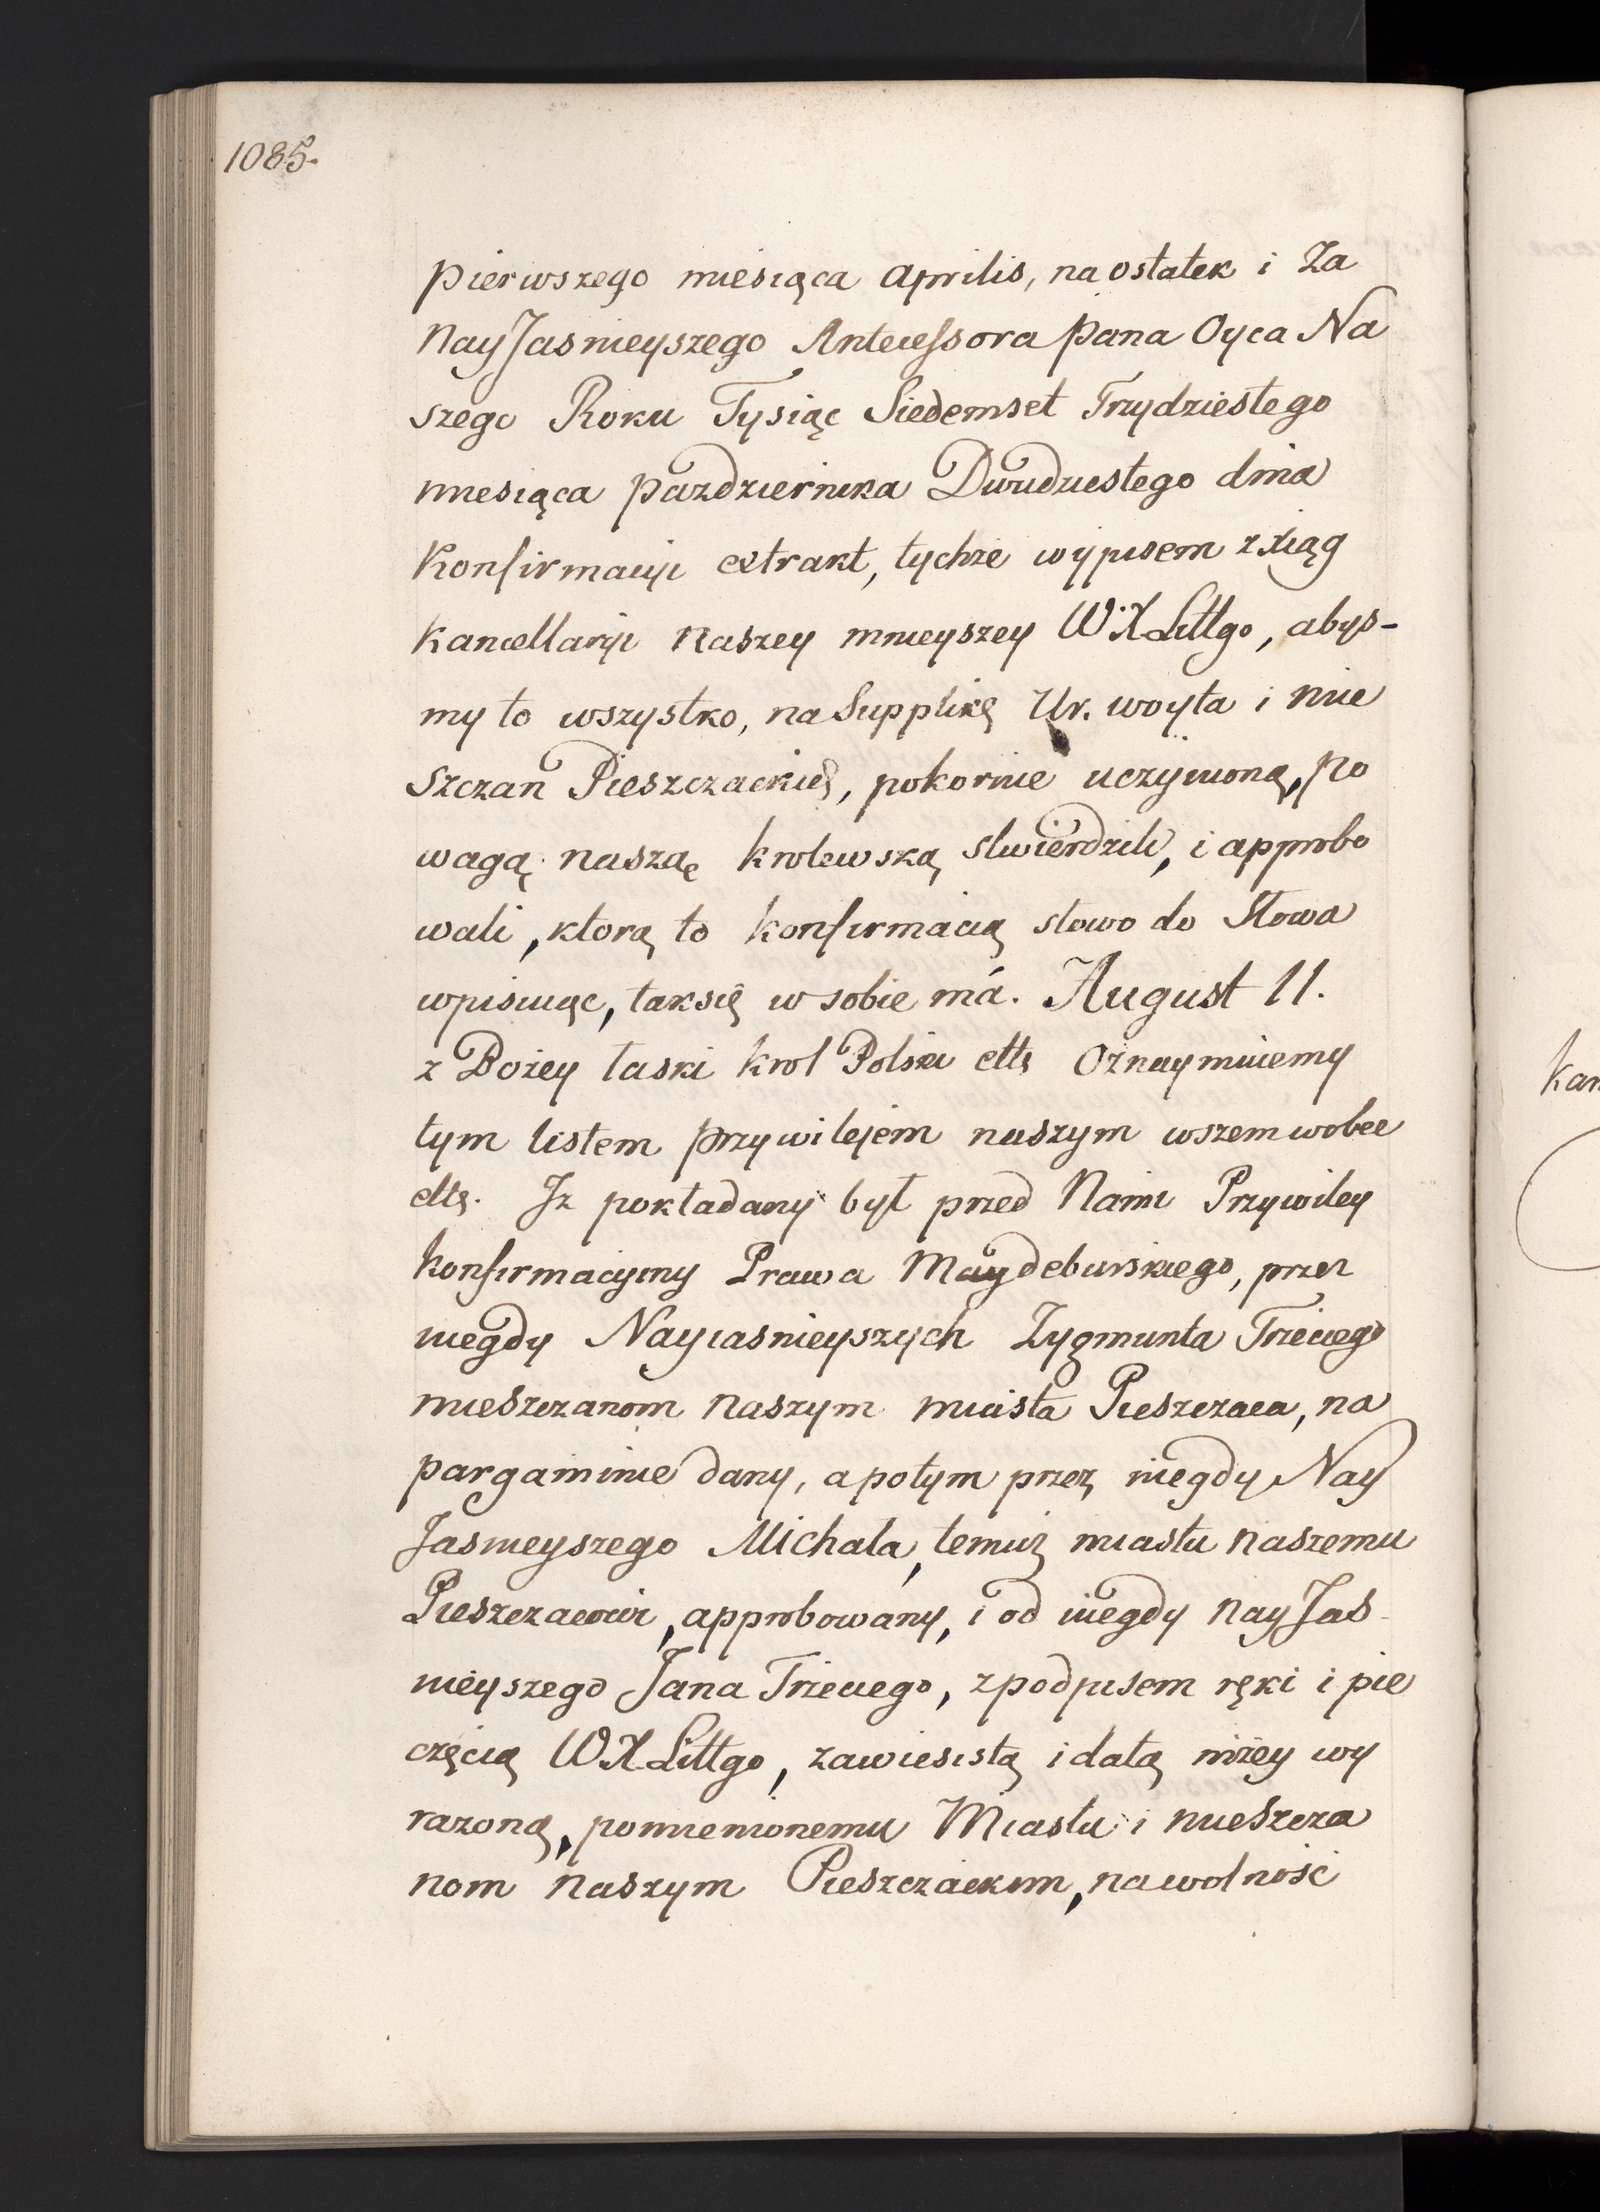 1085.
pierwszego miesiąca Aprilis, na ostatek i Za
NayJasnieyszego Antecessora Pana Oyca Na
szego Roku Tysiąc Siedemset Trzydziestego
miesiąca pazdziernika Dwudziestego dnia
Konfirmacyi extrakt, tychże wypisem z xiąg
Kancellaryi naszey mnieyszey W.X.Littgo, abys-
my to wszystko, na Supplikę Ur. woyta i mie
szczan Pieszczackich, pokornie uczynioną, po
wagą naszą krolewską stwierdzili, i approbo
wali, ktorą to konfirmacią słowo do Słowa
wpisuiąc, tak się w sobie má. August II.
z Bożey łaski krol Polski etts Oznaymuiemy
tym listem przywilejem naszym wszem wobec
etts. Jz pokładany był przed Nami Przywiley
konfirmacyiny Prawa Maydeburskiego, przez
niegdy Nayiasnieyszych Zygmunta Trzeciego
mieszczanom naszym miasta Pieszczaca, na
pargaminie dany, a potym przez niegdy Nay
Jasnieyszego Michała, temuż miastu naszemu
Pieszczacowi, approbowany, i od niegdy NayJas-
nieyszego Jana Trzeciego, z podpisem ręki i pie
częcią W.X.Littgo, zawiesistą i datą niżey wy
razoną, pomienionemu Miastu i mieszcza
nom naszym Pieszczackim, na wolność
kan